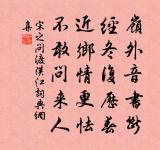 嶺外音書斷
經冬復歷春
近鄉情更怯
不敢問來人
宋之問渡漢江詞典網
集